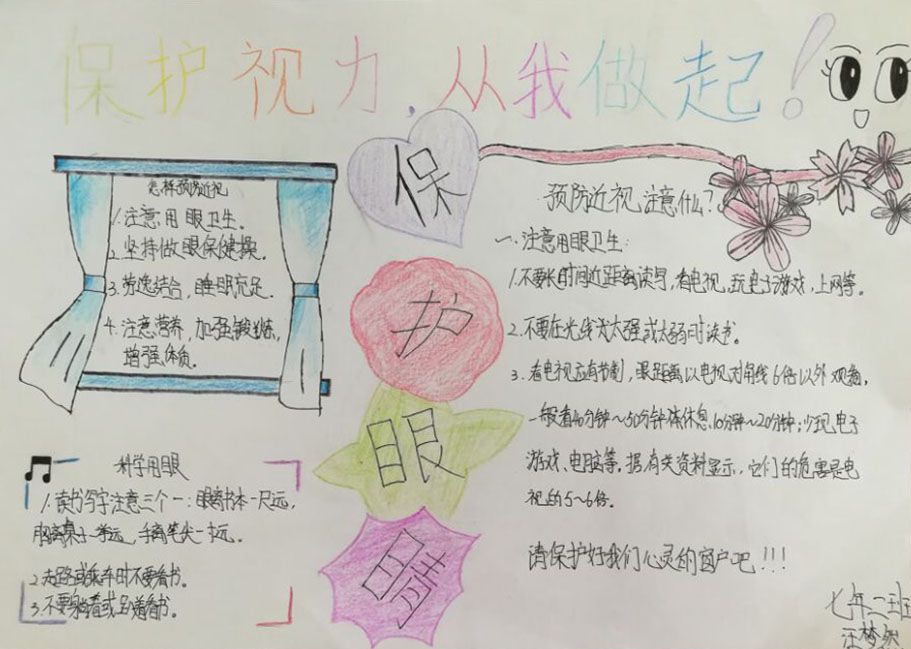 保护视力，从我做起！
怎样预防近视
1.注意用眼卫生。
2.坚持做眼保健操。
3.劳逸结合，睡眠充足。
4.注意营养，加强锻炼，
增强体质。
科学用眼
1.读书写字注意三个一：眼离书本一尺远，
胸离桌子一拳远，手离笔尖一寸远。
2.走路或乘车时不要看书。
3.不要躺着或趴着看书。
保
护
眼
睛
预防近视注意什么？
一.注意用眼卫生：
1.不要长时间近距离读写，看电视，玩电子游戏，上网等。
2.不要在光线太强或太弱时读书。
3.看电视应有节制，眼距离以电视对角线6倍以外观看。
一般看40分钟～50分钟休息10分钟～20分钟；少玩电子
游戏、电脑等。据有关资料显示，它们的危害是电
视的5～6倍。
请保护好我们心灵的窗户吧!!!
七年二班
汪梦